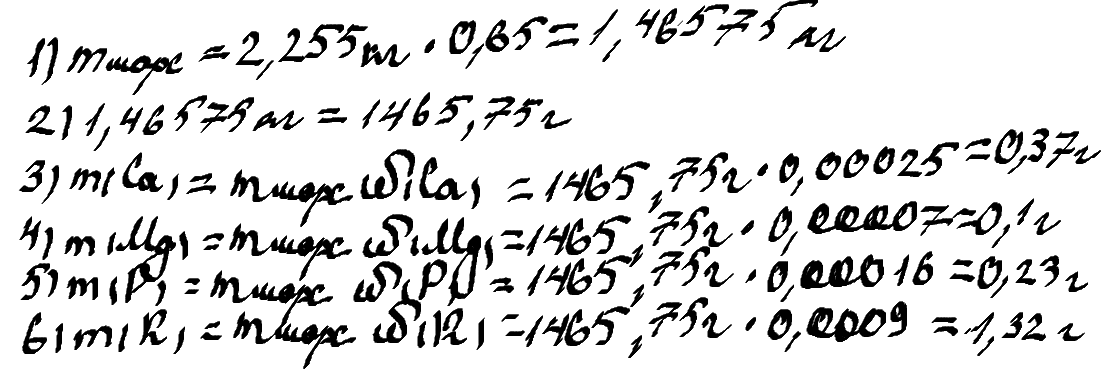 1) mморс = 2,255кг · 0,65 = 1,46575 кг
2) 1,46575 кг = 1465,75г
3) m(Ca) = mморс ω(Ca) = 1465,75г · 0,00025 = 0,37г
4) m(Mg) = mморс ω(Mg) = 1465,75г · 0,00007 = 0,1г
5) m(P) = mморс ω(P) = 1465,75г · 0,00016 = 0,23г
6) m(K) = mморс ω(K) = 1465,75г · 0,0009 = 1,32г